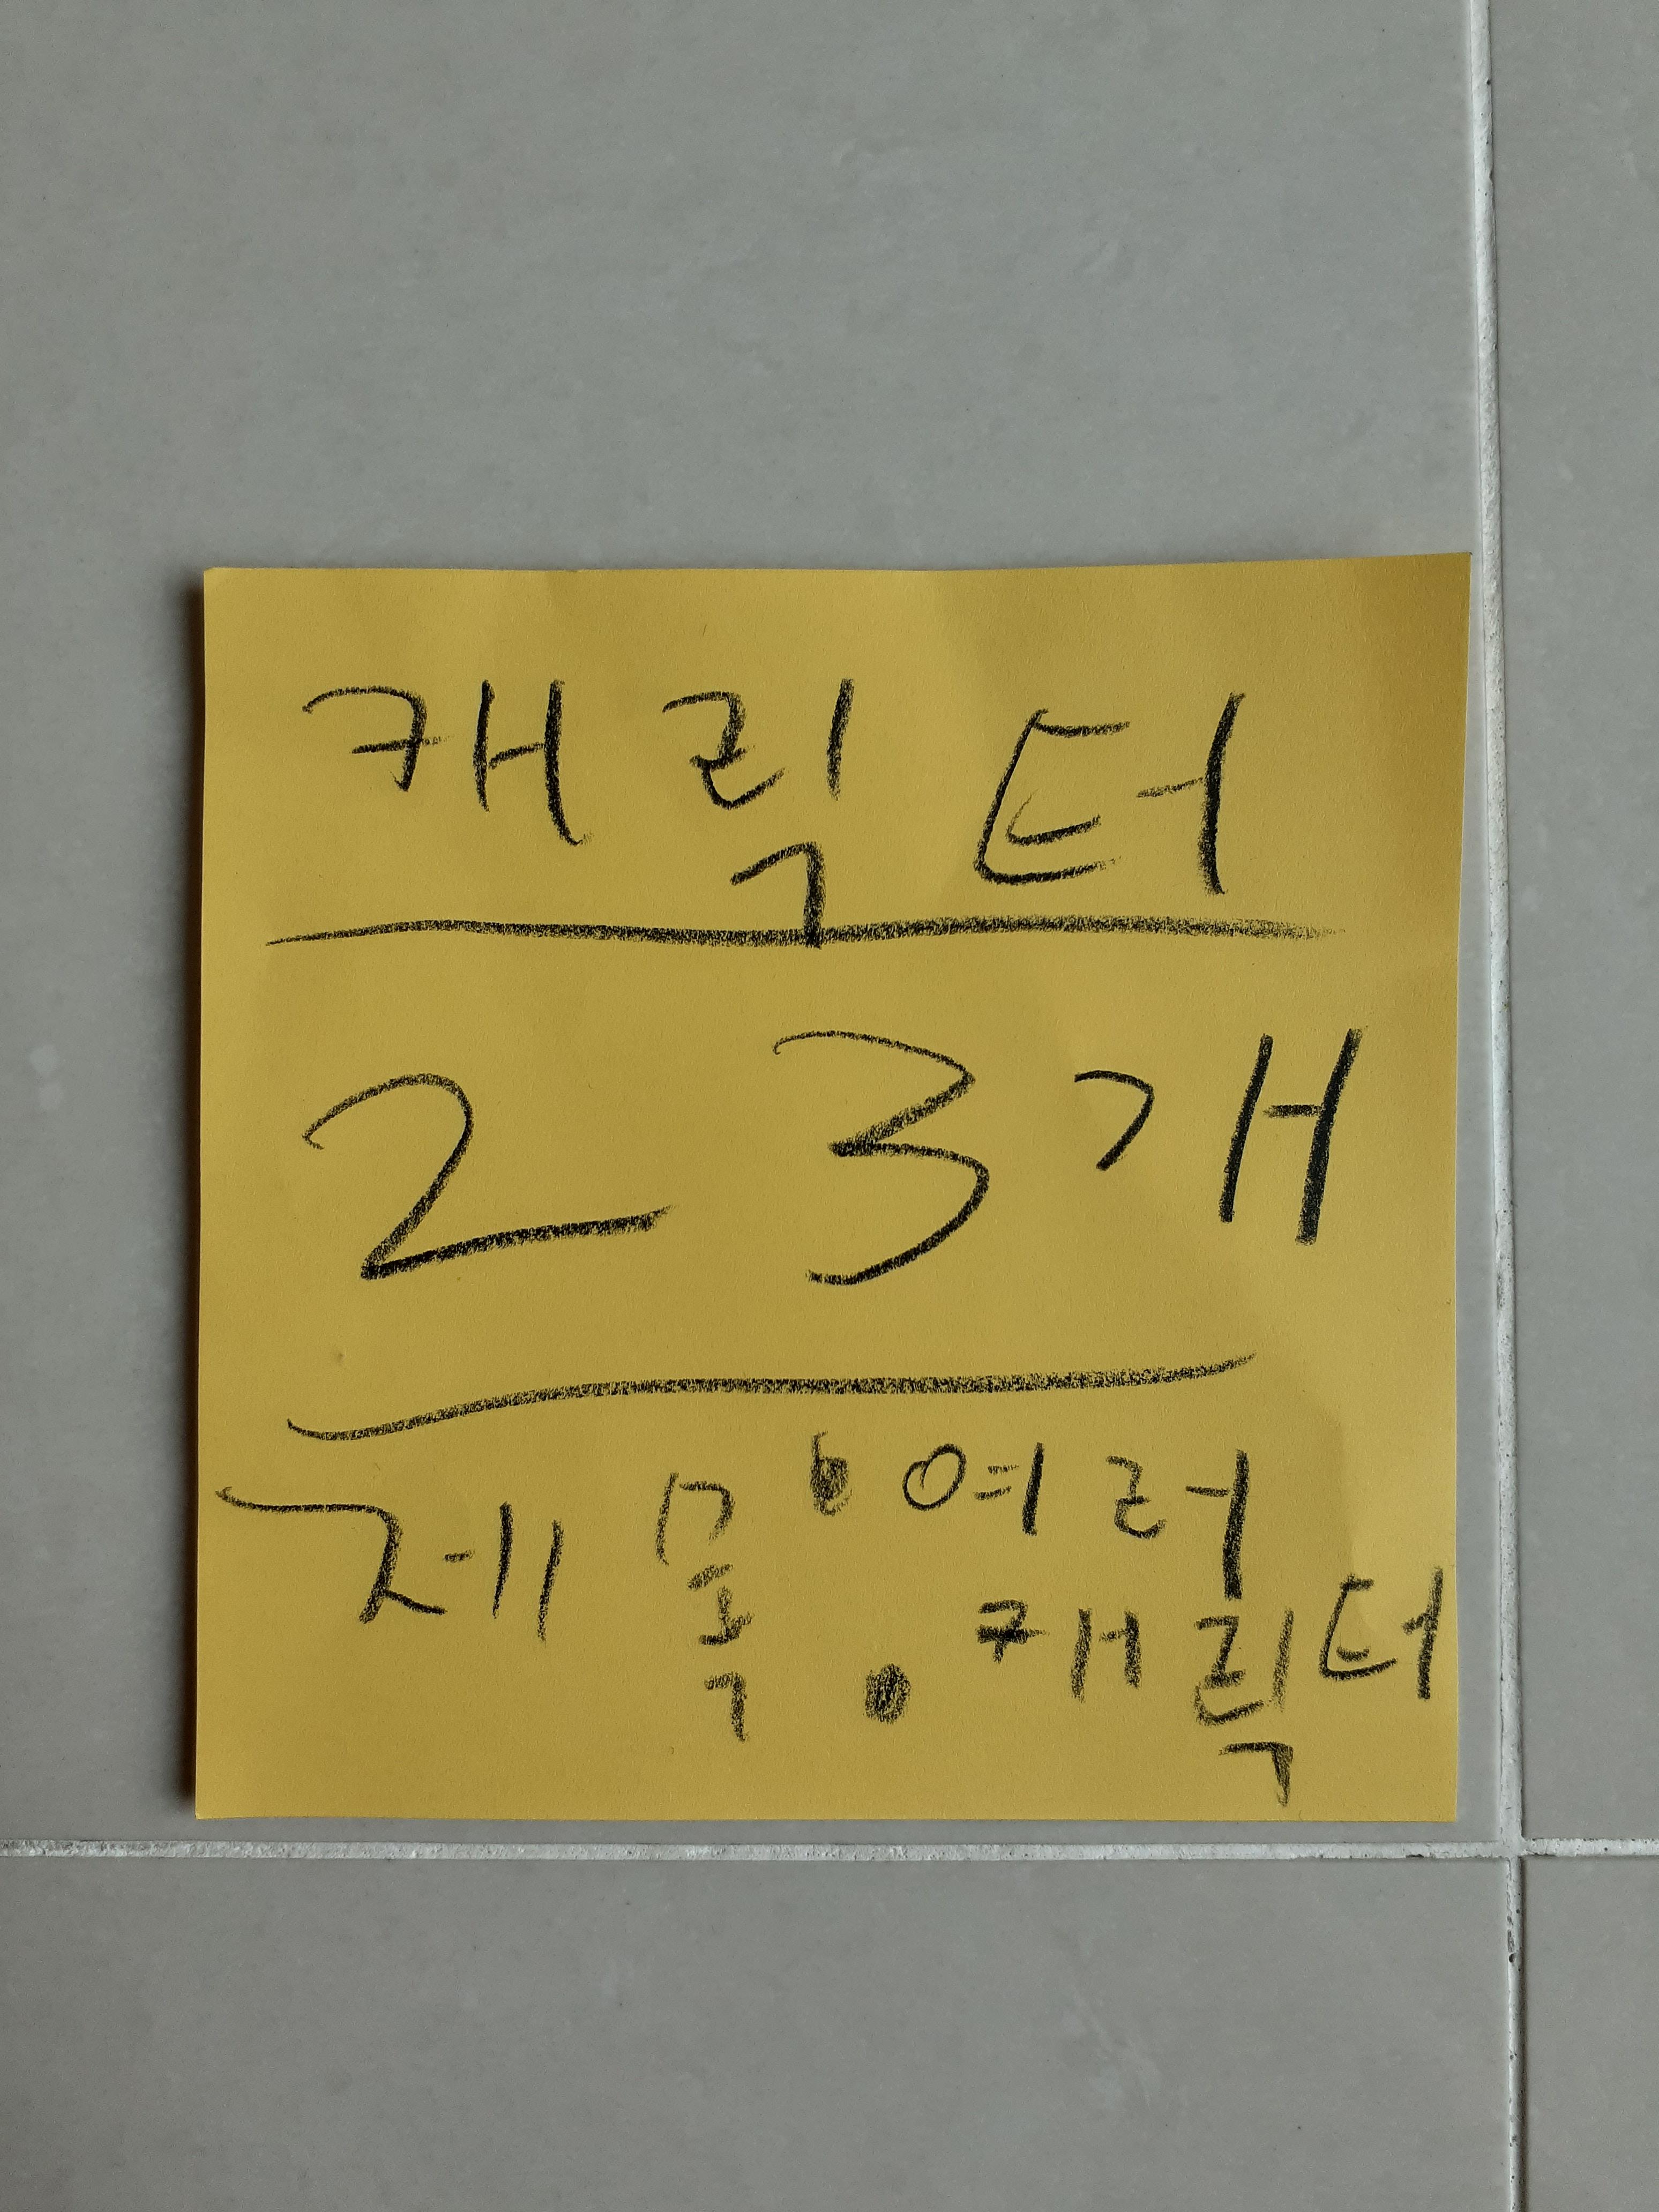 캐릭터
23개
제목: 여러
캐릭터